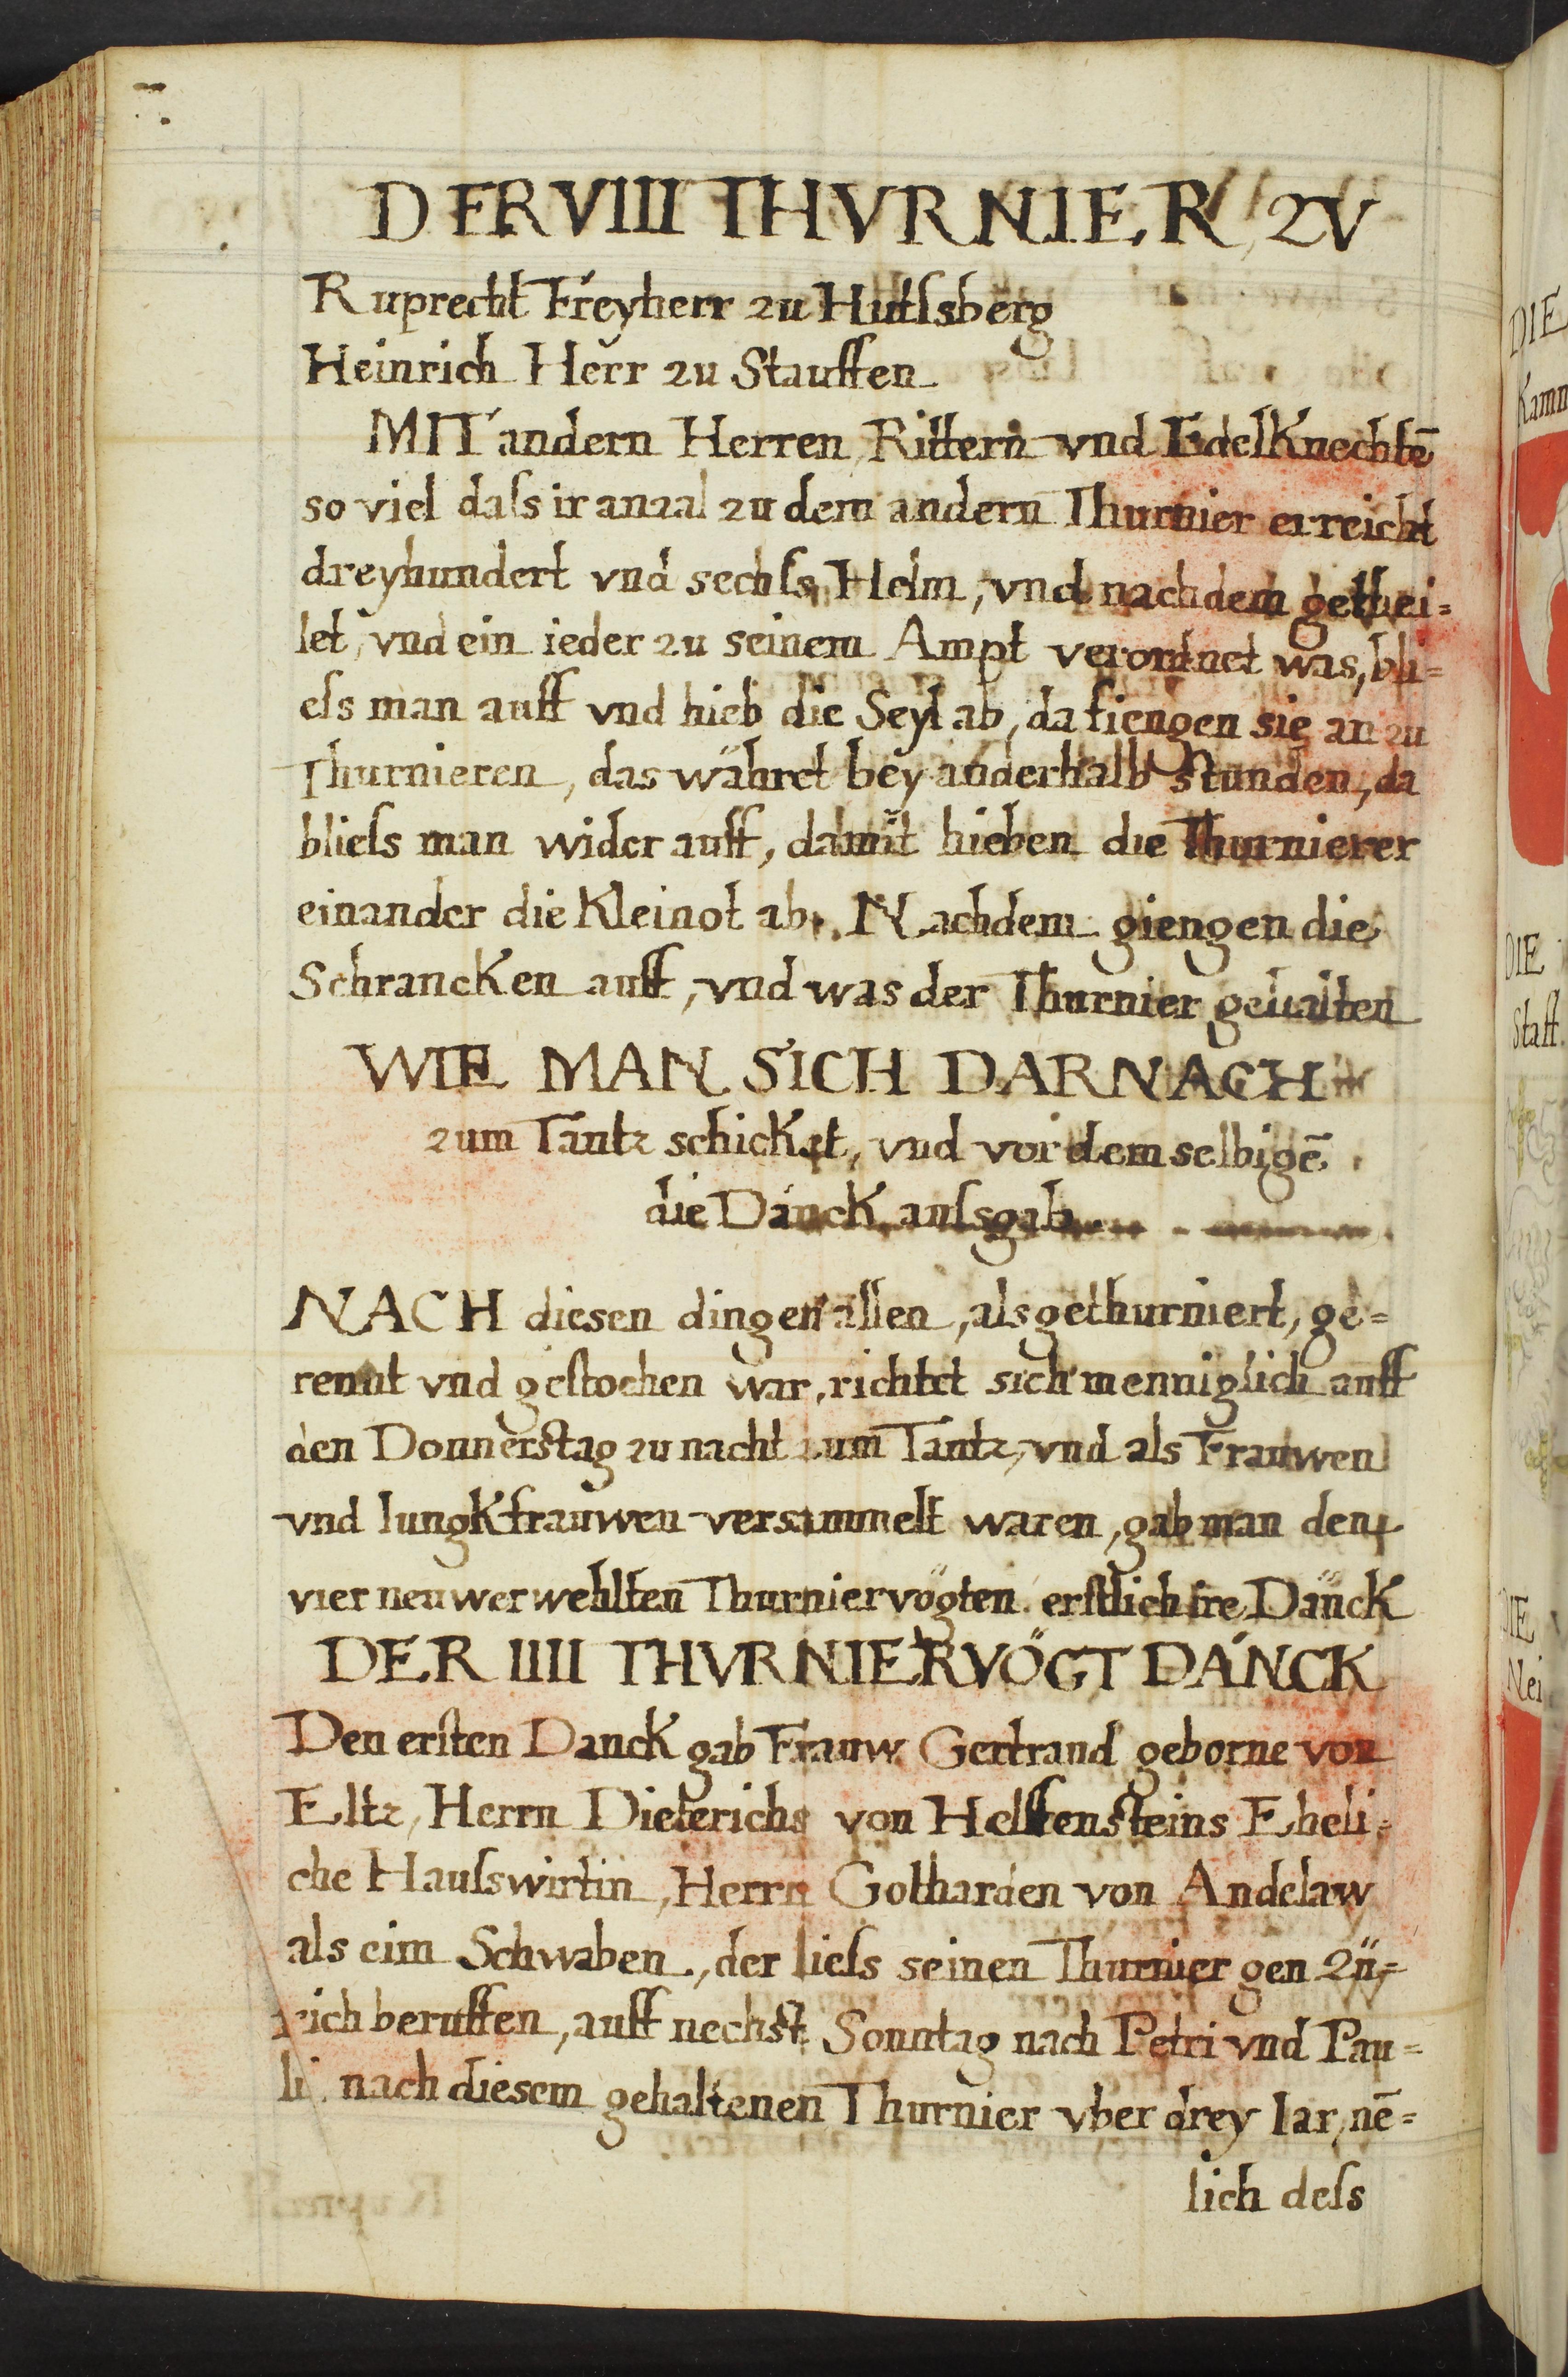 DER VIII THVRNIER, ZV
Ruprecht Freyherr zu Hutſsberg
Heinrich Herr zu Stauffen
MIT andern Herren, Rittern vnd Edelknechtē
so viel daſs ir anzal zu dem andern Thurnier erreicht
dreyhundert vnd sechſs Helm, vnd nachdem gethei=
let, vnd ein ieder zu seinem Ampt verordnet was, bli=
eſs man auff vnd hieb die Seyl ab, da fiengen sie an zu
Thurnieren, das währet bey anderhalb Stunden, da
blieſs man wider auff, damit hieben die Thurnierer
einander die Kleinot ab. Nachdem giengen die
Schrancken auff, vnd was der Thurnier gehalten
WIE MAN SICH DARNACH
zum Tantz schicket, vnd vor demselbigē
die Dänck auſsgab
NACH diesen dingen allen, als gethurniert, ge=
rennt vnd geſtochen war, richtet sich menniglich auff
den Donnerſtag zu nacht zum Tantz, vnd als Frauwen
vnd Iungkfrauwen versammelt waren, gab man den
vier neuwerwehlten Thurniervögten erſtlich ire Dänck
DER IIII THVRNIERVÖGT DÄNCK
Den erſten Danck gab Frauw Gertraud geborne von
Eltz, Herrn Dieterichs von Helffenſteins Eheli=
che Hauſswirtin, Herrn Gotharden von Andelaw
als eim Schwaben, der lieſs seinen Thurnier gen Zü=
rich beruffen, auff nechſt Sonntag nach Petri vnd Pau=
li nach diesem gehaltenen Thurnier vber drey Iar, nē=
lich deſs
DIE
Kamm
DIE
Staff
DIE
Nei